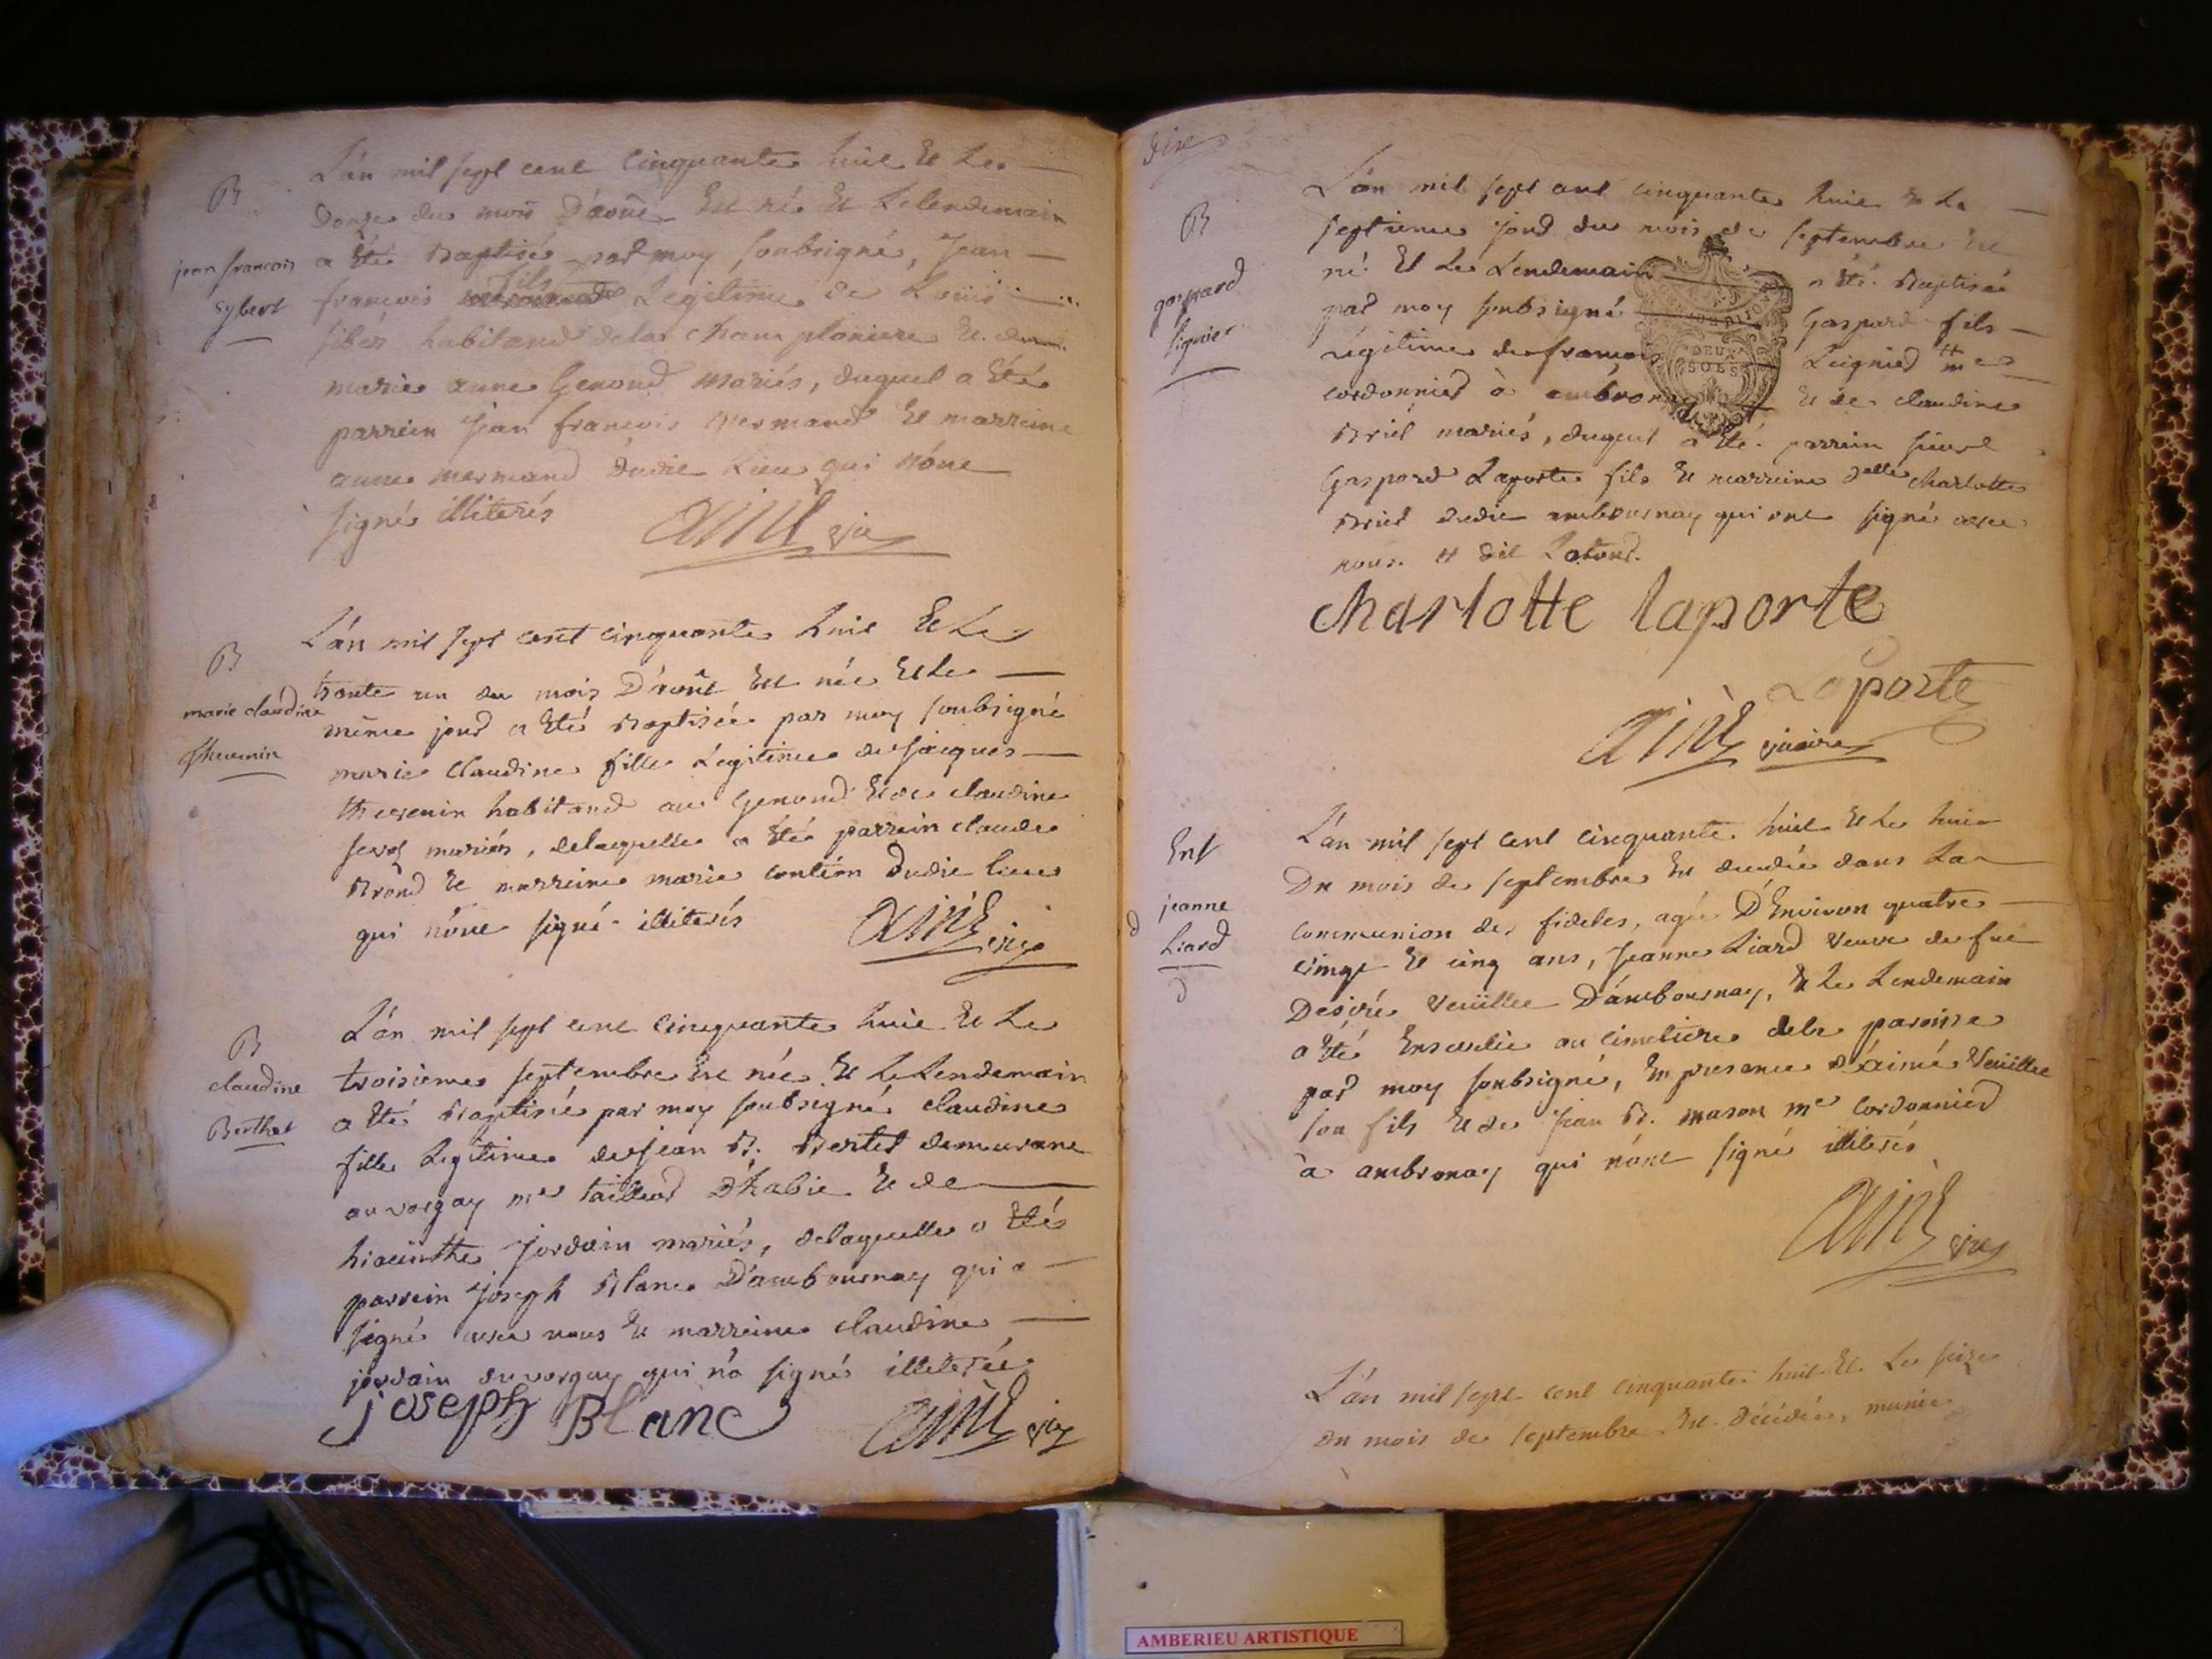 B
jean francois
sybert
L'an mil sept cent cinquante huit et le
douze du mois D'aoüt Est né Et Le lendemain
a Eté Baptisé par moy soubsigné, Jean
francois fils Legitime de Loüis
siber habitand dela champloniere Et de
marie anne Genond mariés, duquel a Eté
parrein Jean francois mermand Et marreine
anne mermand dudit Lieu qui n'ont
signés illiterés
aimé vic
B
marie claudine
thevenin
L'an mil sept cent cinquante huit Et Le
trente un du mois D'aoüt Est née Et Le
même jour a Eté Baptisée par moy soubsigné
marie Claudine fille Legitime de Jacques
thevenin habitand au Genond Et de claudine
mariés, delaquelle a Eté parrein claude
Brond Et marreine marie dudit lieu
qui n'ont signé illiterés
aimé vic
B
claudine
Berthet
L'an mil sept cent cinquante huit Et Le
troisieme septembre Est née Et Le Lendemain
a Eté Baptisée par moy soubsigné claudine
fille Legitime de Jean B. Bertet demeurant
au vorgay me tailleur D'habit Et de
hiacinthe Jordain mariés, delaquelle a Eté
parrein Joseph Blanc D'ambournay qui a
signé avec nous Et marreine claudine
jordain du vorgay qui n'a signé illeterée
joseph Blanc
aimé vic
B
gaspard
L'an mil sept cent cinquante huit Et Le
septieme jour du mois de septembre Est
né Et Le Lendemain a Eté Baptisé
par moy soubsigné Gaspard fils
Légitime de francois Leignied me
cordonnier à ambronay Et de claudine
Briel mariés, duquel a Eté parrein sieur
Gaspard Laporte fils Et marreine delle Charlotte
Briel dudit ambournay qui ont signé avec
nous
DEUX
SOLS
charlotte laporte
Laporte
aimé vicaire
Ent
jeanne
Liard
L'an mil sept cent cinquante huit Et Le huit
Du mois de septembre Est decedée dans La
communion des fideles, agée D'Environ quatre
vingt Et cinq ans, Jeanne Liard veuve de feu
Desiré Veüillet D'ambournay, Et Le Lendemain
a Eté Ensevelie au cimetiere dela paroisse
par moy soubsigné, En presence d'aimé Veüillet
son fils Et de Jean B. mason me cordonnier
à ambronay qui n'ont signé illiterés
aimé vic
L'an mil sept cent cinquante huit Et Le seize
Du mois de septembre Est Décédée, munie
AMBERIEU ARTISTIQUE